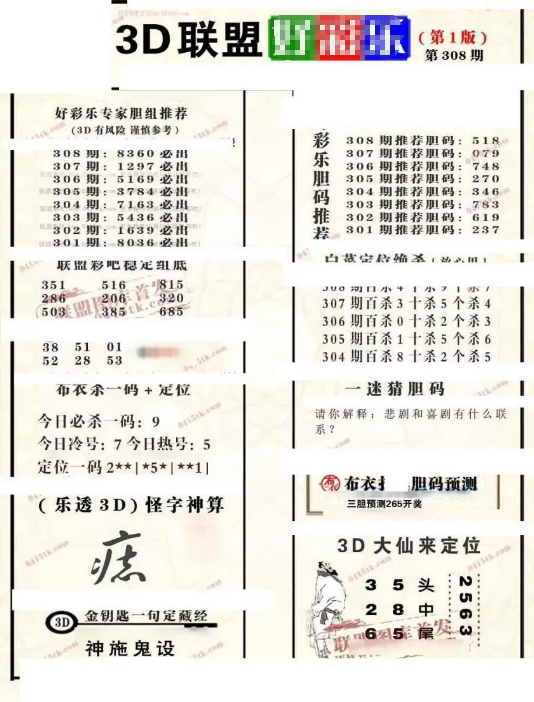 3D联盟好彩乐
(第1版)
第308期
好彩乐专家胆组推荐
(3D有风险 谨慎参考)
308期: 8360必出
307期: 1297必出
306期: 5169必出
305期: 3784必出
304期: 7163必出
303期: 5436必出
302期: 1639必出
301期: 8036必出
联盟彩吧稳定组底
351 516 815
286 206 320
503 385 685
38 51 01
52 28 53
布衣杀一码+定位
今日必杀一码: 9
今日冷号: 7 今日热号: 5
定位一码2**|*5*|**1|
(乐透3D)怪字神算
3D
金钥匙一句定藏经
神施鬼设
彩乐胆码推荐
308期推荐胆码: 518
307期推荐胆码: 079
306期推荐胆码: 748
305期推荐胆码: 270
304期推荐胆码: 346
303期推荐胆码: 783
302期推荐胆码: 619
301期推荐胆码: 237
307期百杀3十杀5个杀4
306期百杀0十杀2个杀3
305期百杀1十杀5个杀6
304期百杀8十杀2个杀5
一迷猜胆码
请你解释: 悲剧和喜剧有什么联
系?
布衣 胆码预测
三胆预测265开奖
3D大仙来定位
3 5 头
2 8 中
6 5 尾
2563